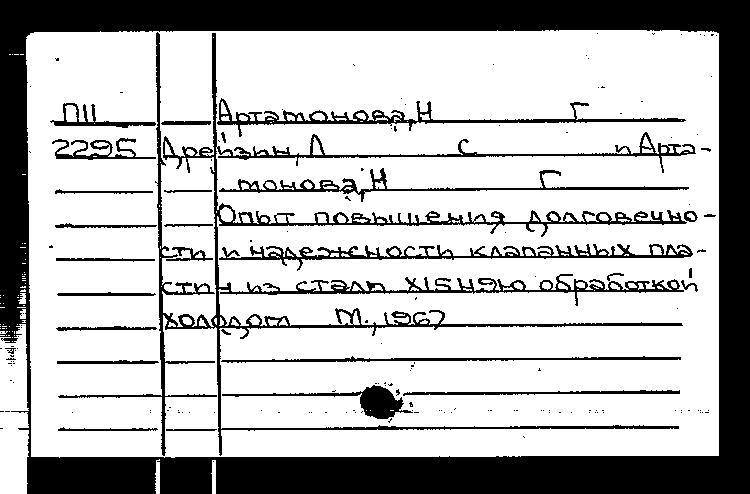 П11 Артамонова, Н Г
2295 Дрейзин, Л С и Арта-
монова, Н Г
Опыт повышения долговечно-
сти и надежности клапанных пла-
стин из стали Х15Н9Ю обработкой
холодом М., 1967